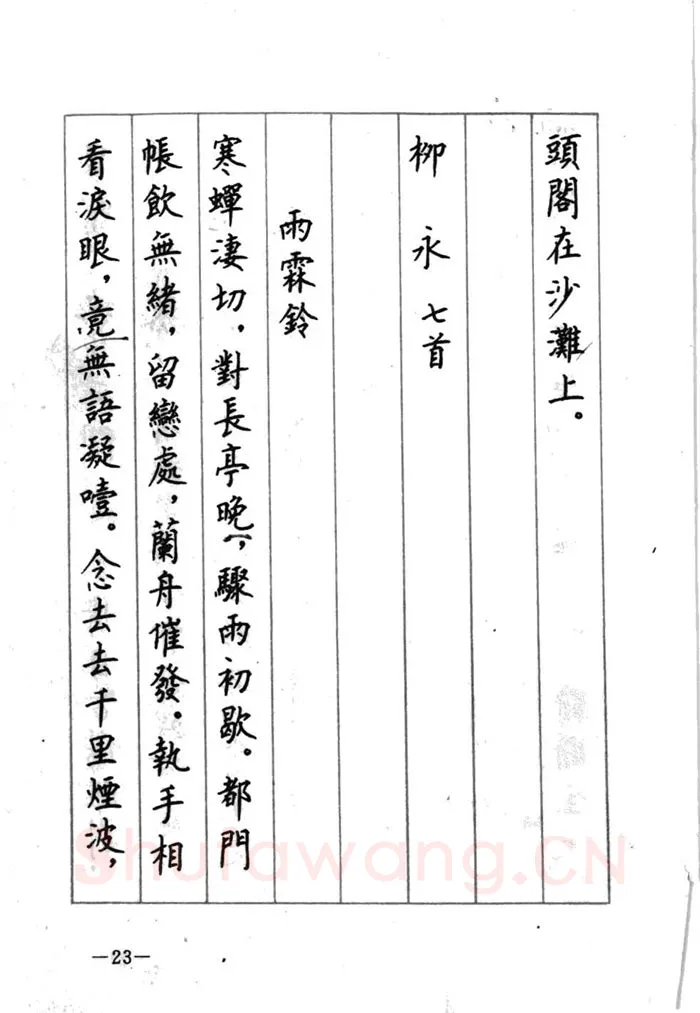 頭閣在沙灘上。
柳永七首
雨霖鈴
寒蟬淒切，對長亭晚，驟雨初歇。都門
帳飲無緒，留戀處，蘭舟催發。執手相
看淚眼，竟無語凝噎。念去去千里煙波，
—23—
Shufawang.CN